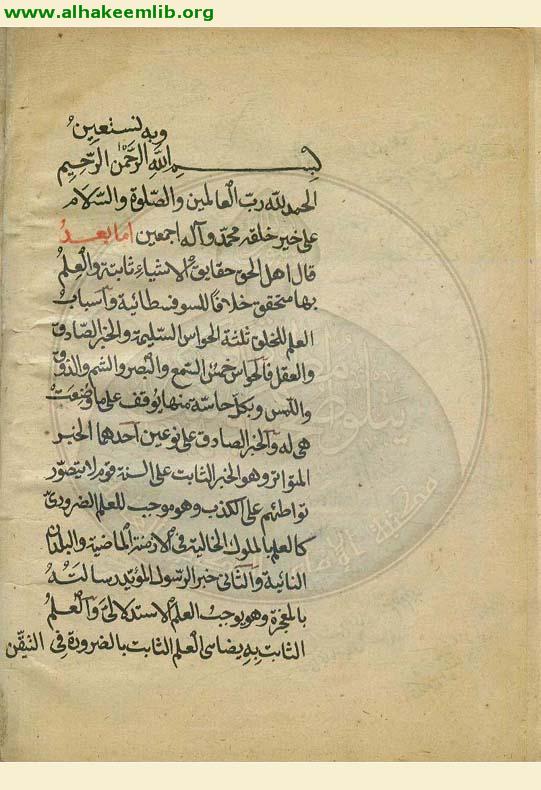 www.alhakeemlib.org
وبه نستعين
بسم الله الرحمن الرحيم
الحمد لله رب العالمين والصلوة والسلام
على خير خلقه محمد وآله اجمعين اما بعد
قال اهل الحق حقايق الاشياء ثابتة والعلم
بها متحقق خلافا للسوفسطائية وأسباب
العلم للخلق ثلثة الحواس السليمة والخبر الصادق
والعقل فالحواس خمس السمع والبصر والشم والذوق
واللمس وبكل حاسة منها يوقف على ما وضعت
هي له والخبر الصادق على نوعين أحدهما الخبر
المتواتر وهو الخبر الثابت على السنة قوم لا يتصور
تواطئهم على الكذب وهو موجب للعلم الضروري
كالعلم بالملوك الخالية في الازمنة الماضية والبلدان
النائية والثاني خبر الرسول المؤيد رسالته
بالمعجزة وهو يوجب العلم الاستدلالي والعلم
الثابت به يضاهي العلم الثابت بالضرورة في التيقن